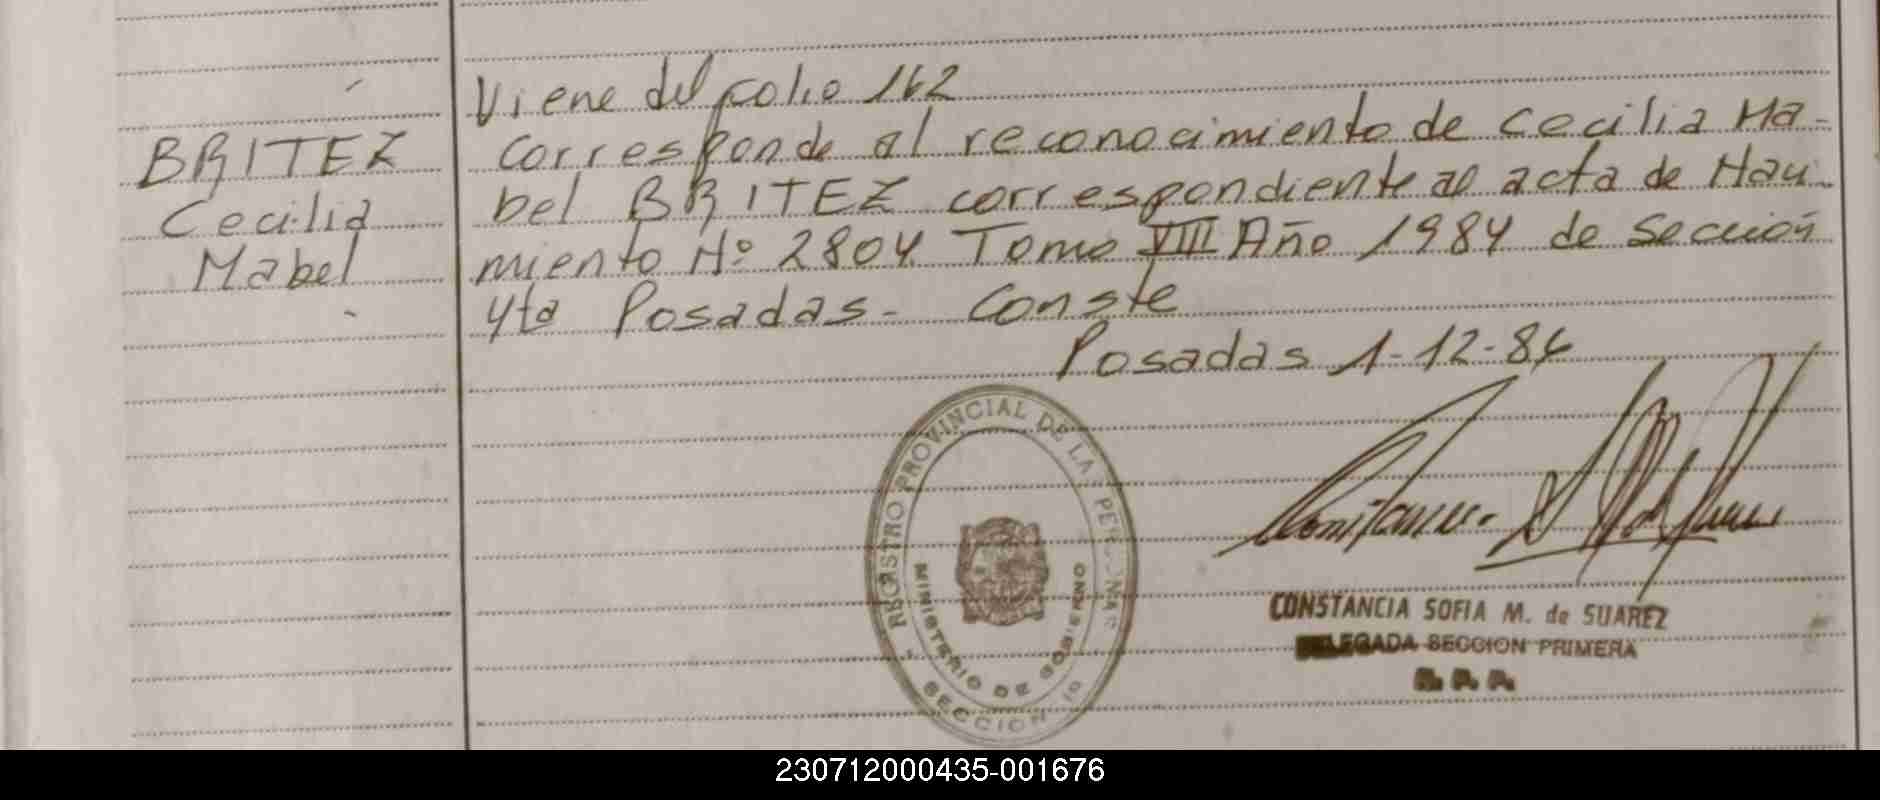 BRITEZ
Cecilia
Mabel
Viene del folio 162
Corresponde al reconocimiento de Cecilia Ma-
bel BRITEZ correspondiente al acta de Naci-
miento Nº 2804 Tomo VIII Año 1984 de Sección
4ta Posadas- Conste
Posadas 1-12-86
REGISTRO PROVINCIAL DE LA PERSONAS
MINISTERIO DE GOBIERNO
SECCION
CONSTANCIA SOFIA M. de SUAREZ
DELEGADA SECCION PRIMERA
R. P. P.
230712000435-001676